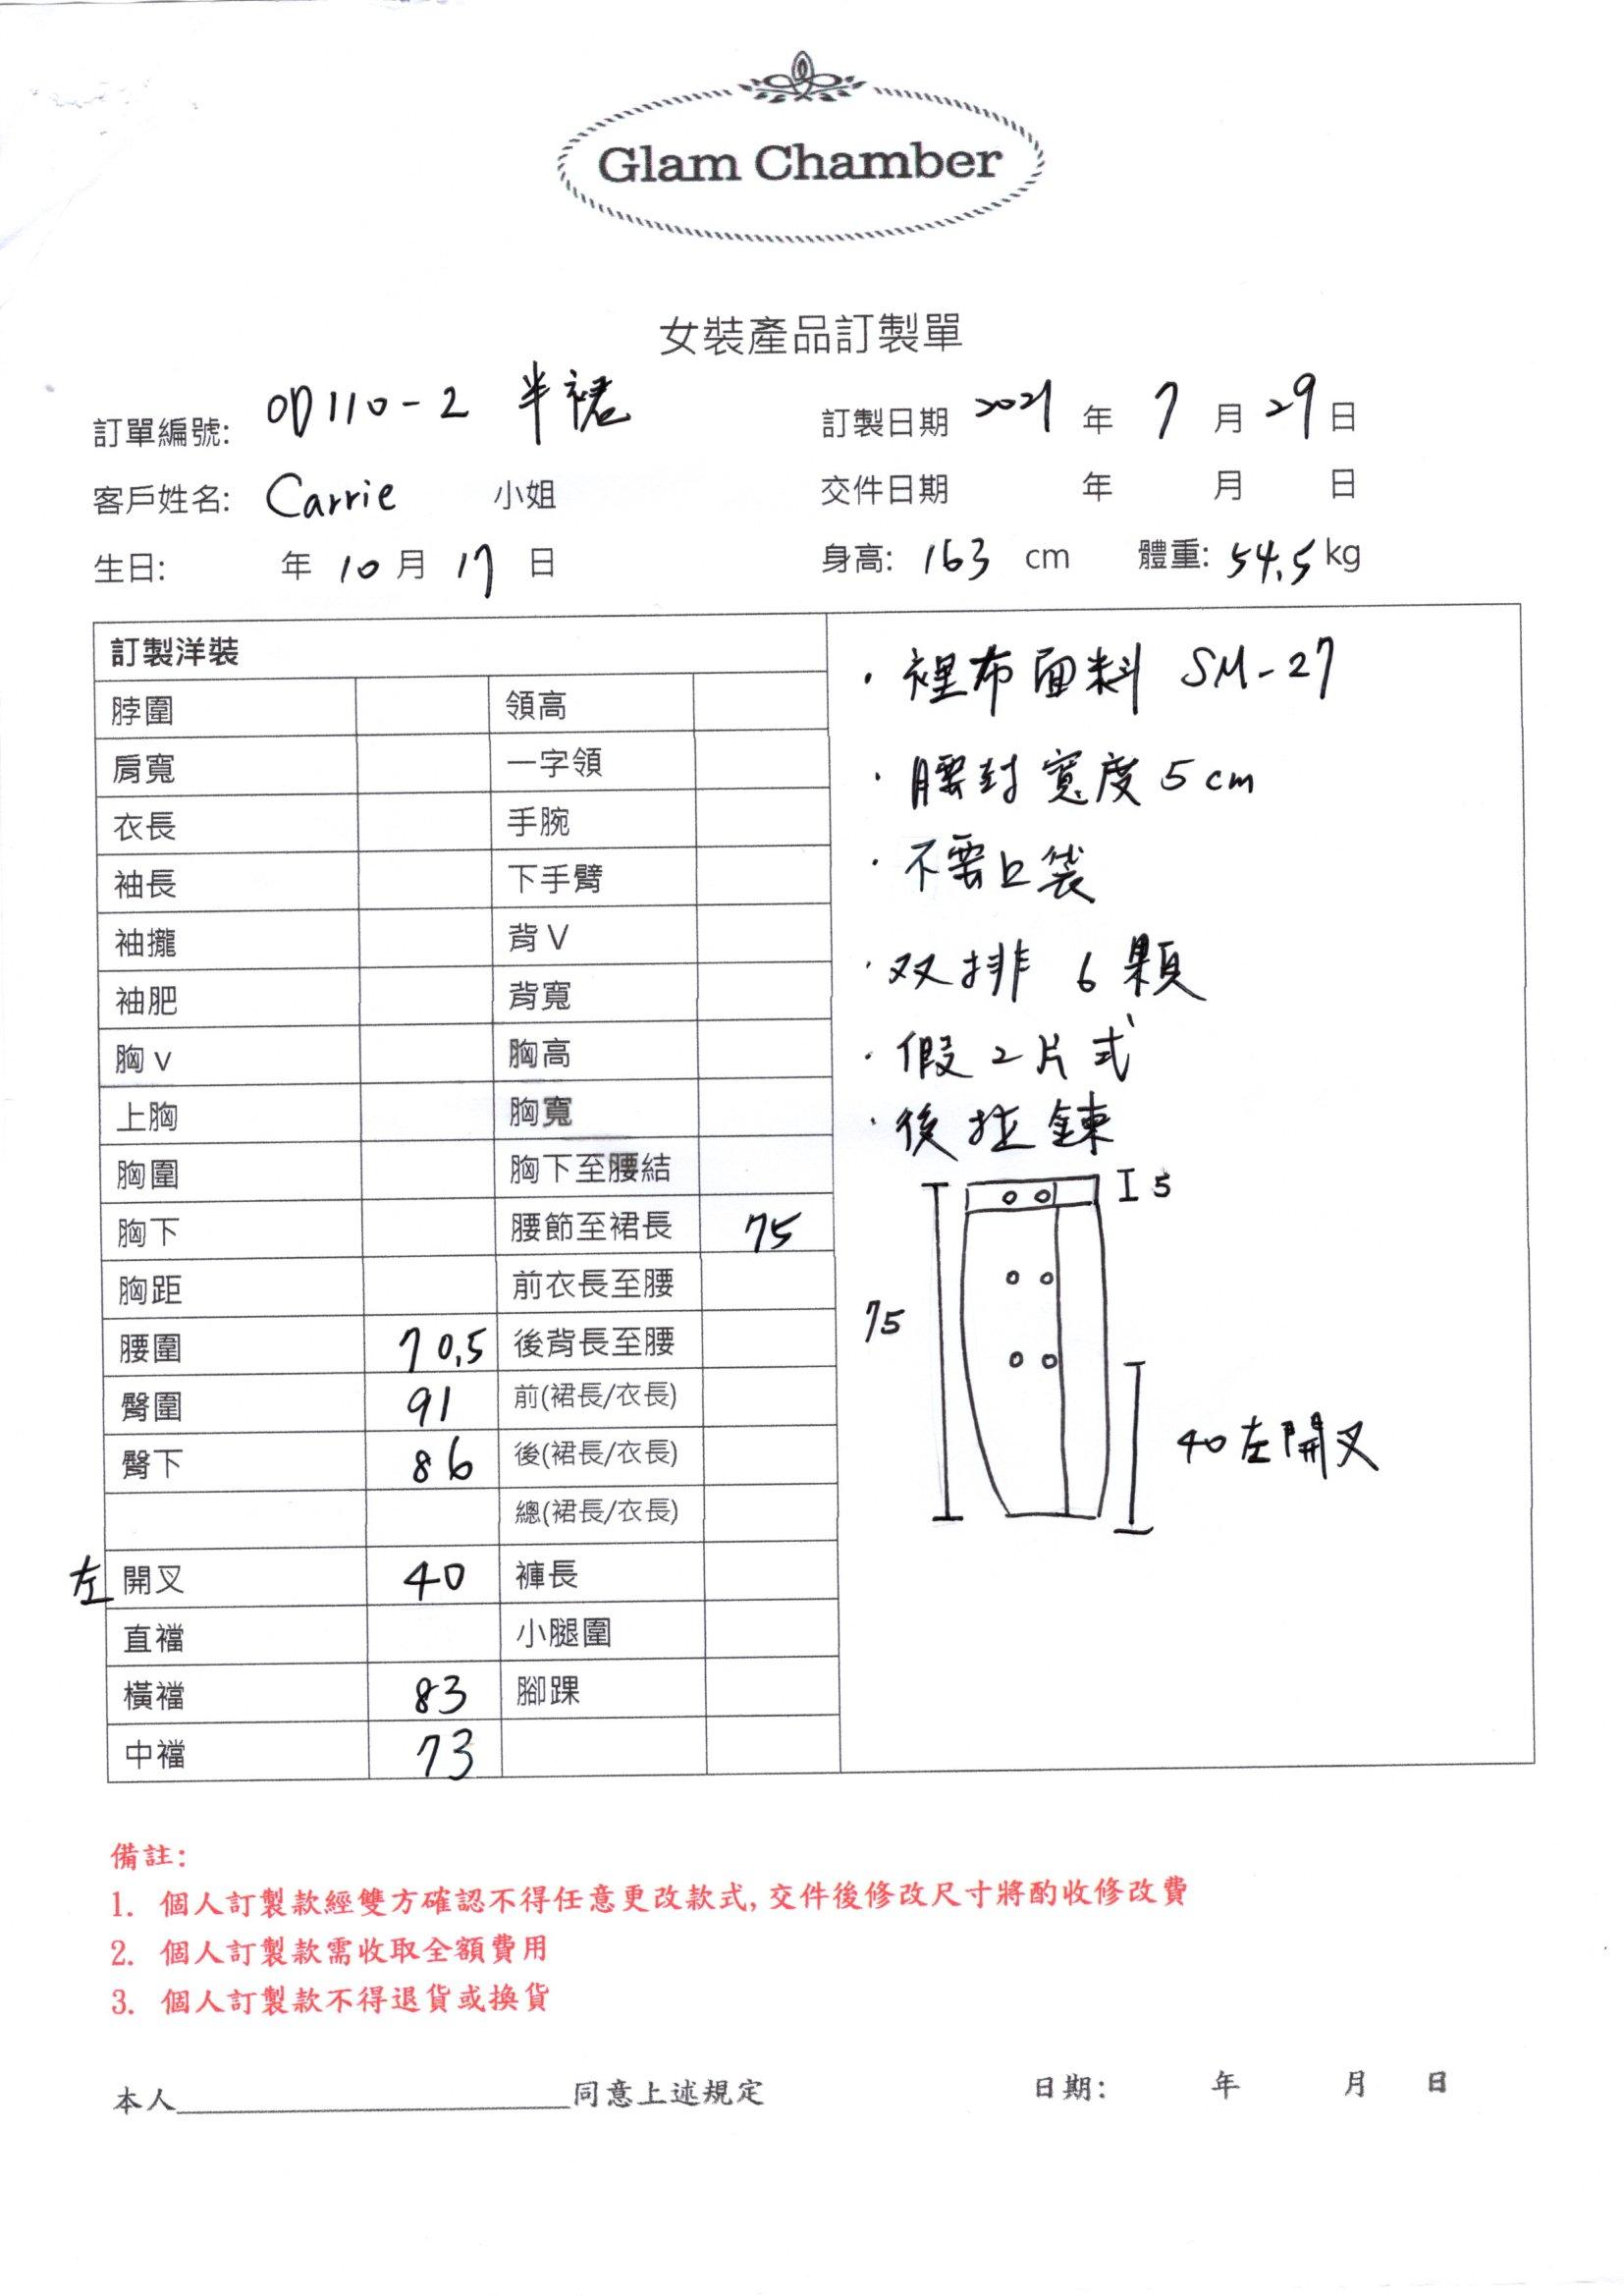 Glam Chamber
女裝產品訂製單
訂單編號: OD110-2 半裙
訂製日期 2021 年 7 月 29 日
客戶姓名: Carrie 小姐
交件日期 年 月 日
生日: 年 10 月 17 日
身高: 163 cm 體重: 54.5 kg
訂製洋裝
脖圍 領高
肩寬 一字領
衣長 手腕
袖長 下手臂
袖攏 背 V
袖肥 背寬
胸 v 胸高
上胸 胸寬
胸圍 胸下至腰結
胸下 腰節至裙長 75
胸距 前衣長至腰
腰圍 70.5 後背長至腰
臀圍 91 前(裙長/衣長)
臀下 86 後(裙長/衣長)
總(裙長/衣長)
左 開叉 40 褲長
直襠 小腿圍
橫襠 83 腳踝
中襠 73
· 裡布面料 SM-27
· 腰封寬度 5 cm
· 不要口袋
· 双排 6 顆
· 假 2 片式
· 後拉鍊
5
75
40 左開叉
備註:
1. 個人訂製款經雙方確認不得任意更改款式, 交件後修改尺寸將酌收修改費
2. 個人訂製款需收取全額費用
3. 個人訂製款不得退貨或換貨
本人____________________同意上述規定
日期: 年 月 日